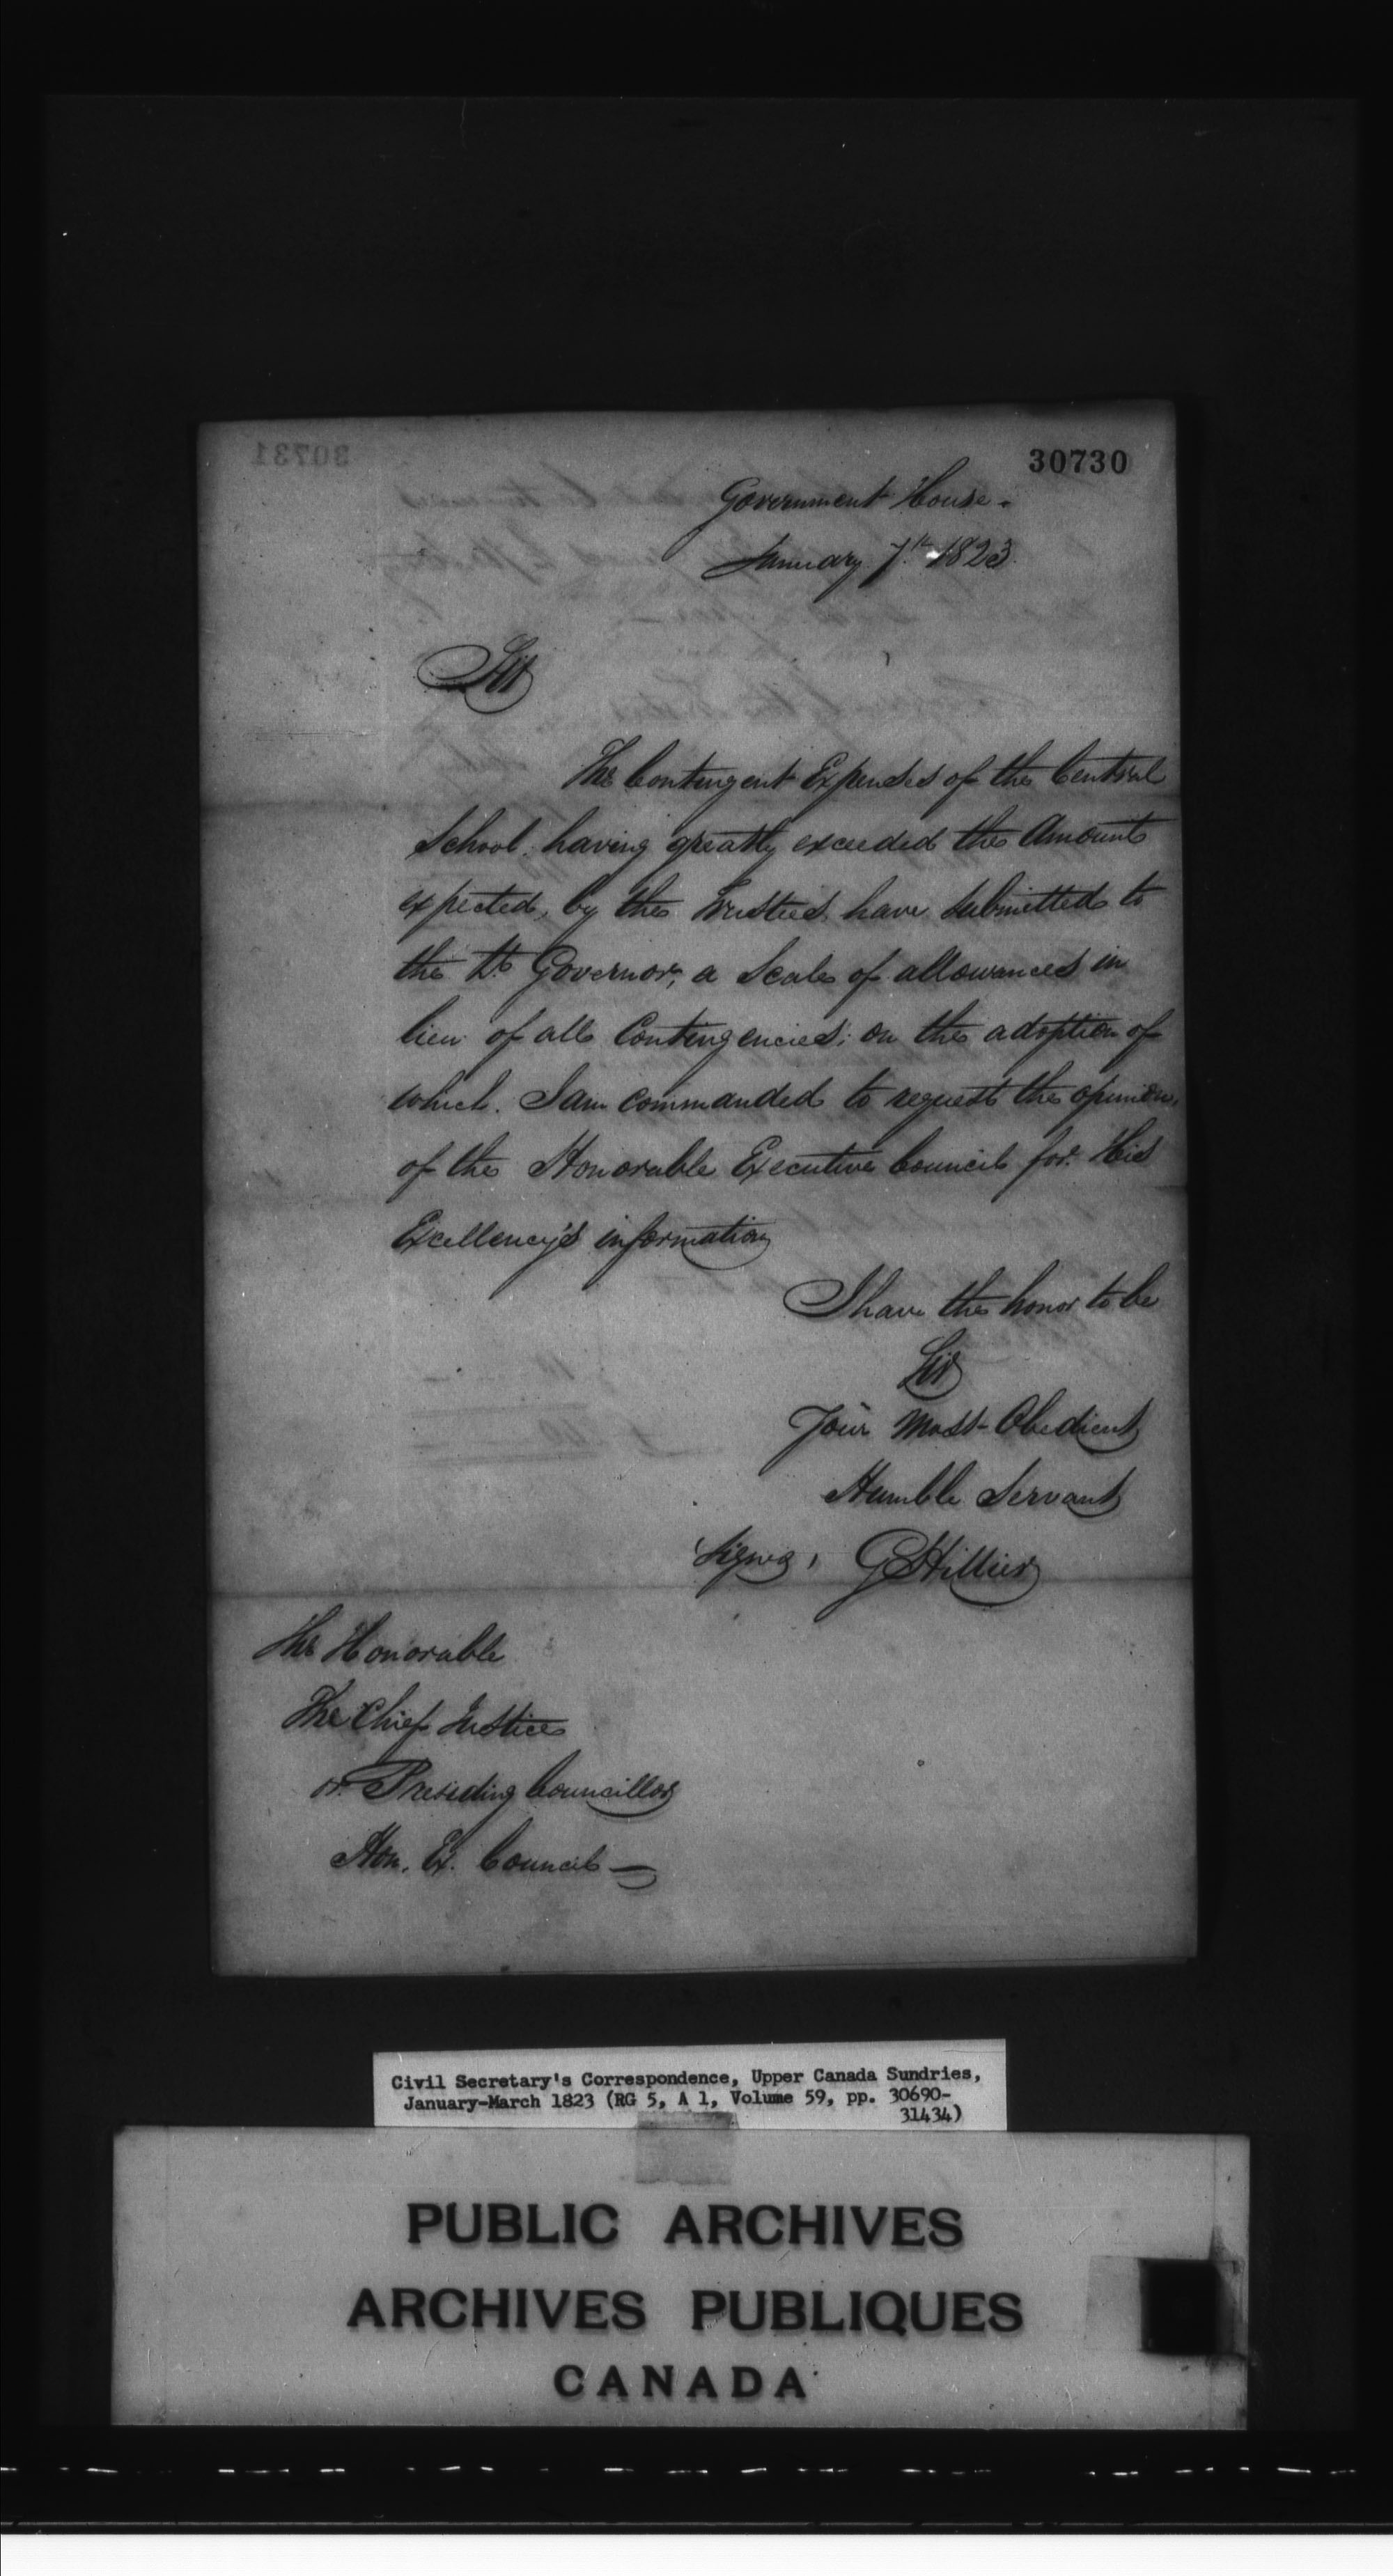 30730
Government House.
January 7th 1823.
Sir
The Contingent Expenses of the Central
School having greatly exceeded the Amount
expected, by the Trustees have submitted to
the Lt Governor, a Scale of allowances in
lieu of all Contingencies; on the adoption of
which. I am commanded to request the opinion,
of the Honorable Executive Council for His
Excellency's information
I have the honor to be
Sir
Your Most Obedient
Humble Servant
Signed, G Hillier
The Honorable
The Chief Justice
or Presiding Councillor
Hon. Ex. Council —
Civil Secretary's Correspondence, Upper Canada Sundries,
January-March 1823 (RG 5, A 1, Volume 59, pp. 30690-
31434)
PUBLIC ARCHIVES
ARCHIVES PUBLIQUES
CANADA